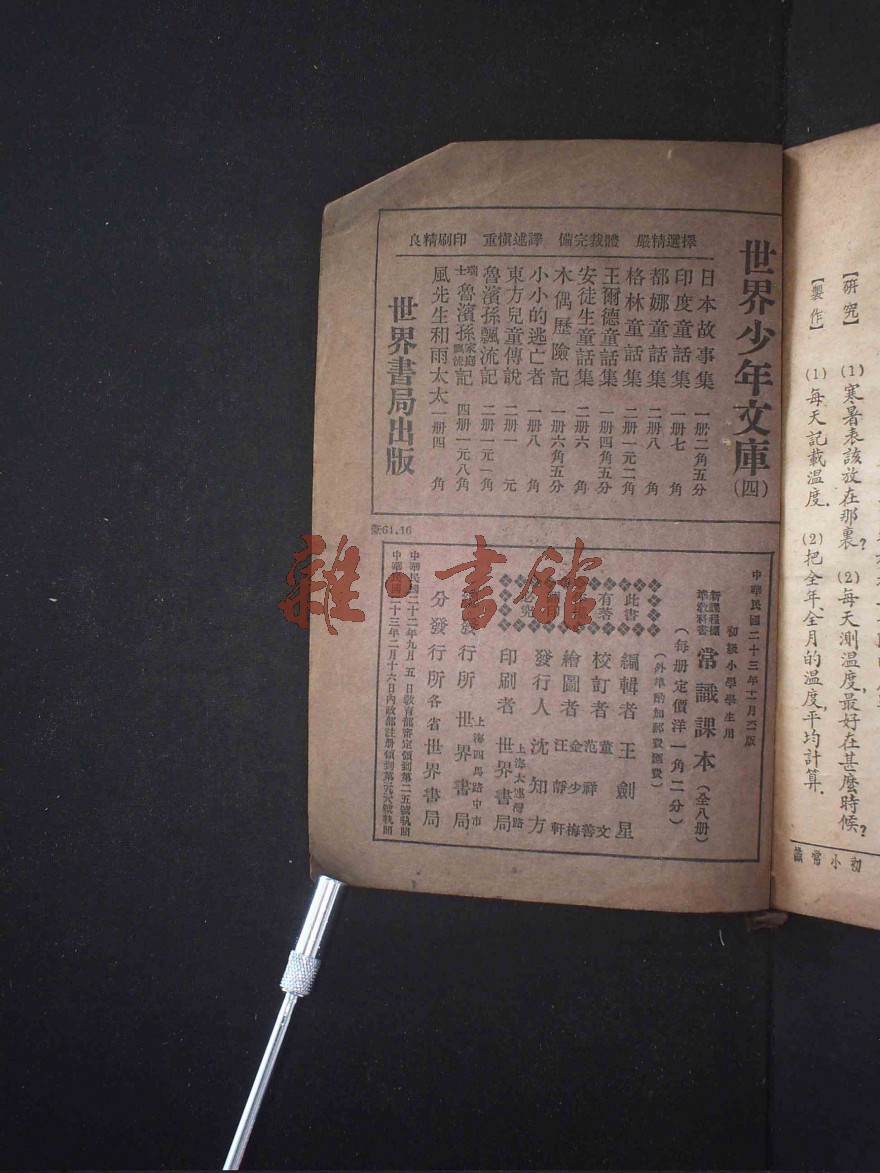 【研究】 (1)寒暑表該放在那裏？ (2)每天測溫度，最好在甚麼時候？
【製作】 (1)每天記載溫度． (2)把全年、全月的溫度，平均計算．
初小常識
世界少年文庫(四)
擇選精嚴 體裁完備 譯述愼重 印刷精良
日本故事集 一册二角五分
印度童話集 一册七角
都娜童話集 二册八角
格林童話集 二册一元二角
王爾德童話集 一册四角五分
安徒生童話集 二册六角
木偶歷險記 一册六角五分
小小的逃亡者 一册八角
東方兒童傳說 二册一元
魯濱孫飄流記 二册一元一角
瑞士魯濱孫家庭飄流記 四册一元八角
風先生和雨太太 一册四角
世界書局出版
61.16
中華民國二十三年
初級小學學生用
新課程標準教科書 常識課本 (全八册)
(每册定價洋一角二分)
(外埠酌加郵費匯費)
此書有著
編輯者 王劍星
校訂者 董文 范祥善
繪圖者 金少梅 汪靜軒
發行人 沈知方
印刷者 上海大連灣路 世界書局
發行所 上海四馬路中市 世界書局
分發行所 各省世界書局
中華民國二十二年九月五日教育部審定領到第二五號執照
中華民國二十三年二月十六日內政部註册領到第
雜·書館